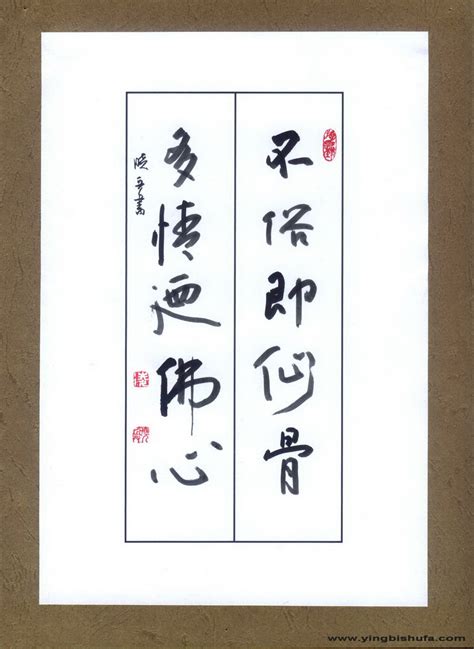 不俗即仙骨
多情迺佛心
www.yingbishufa.com